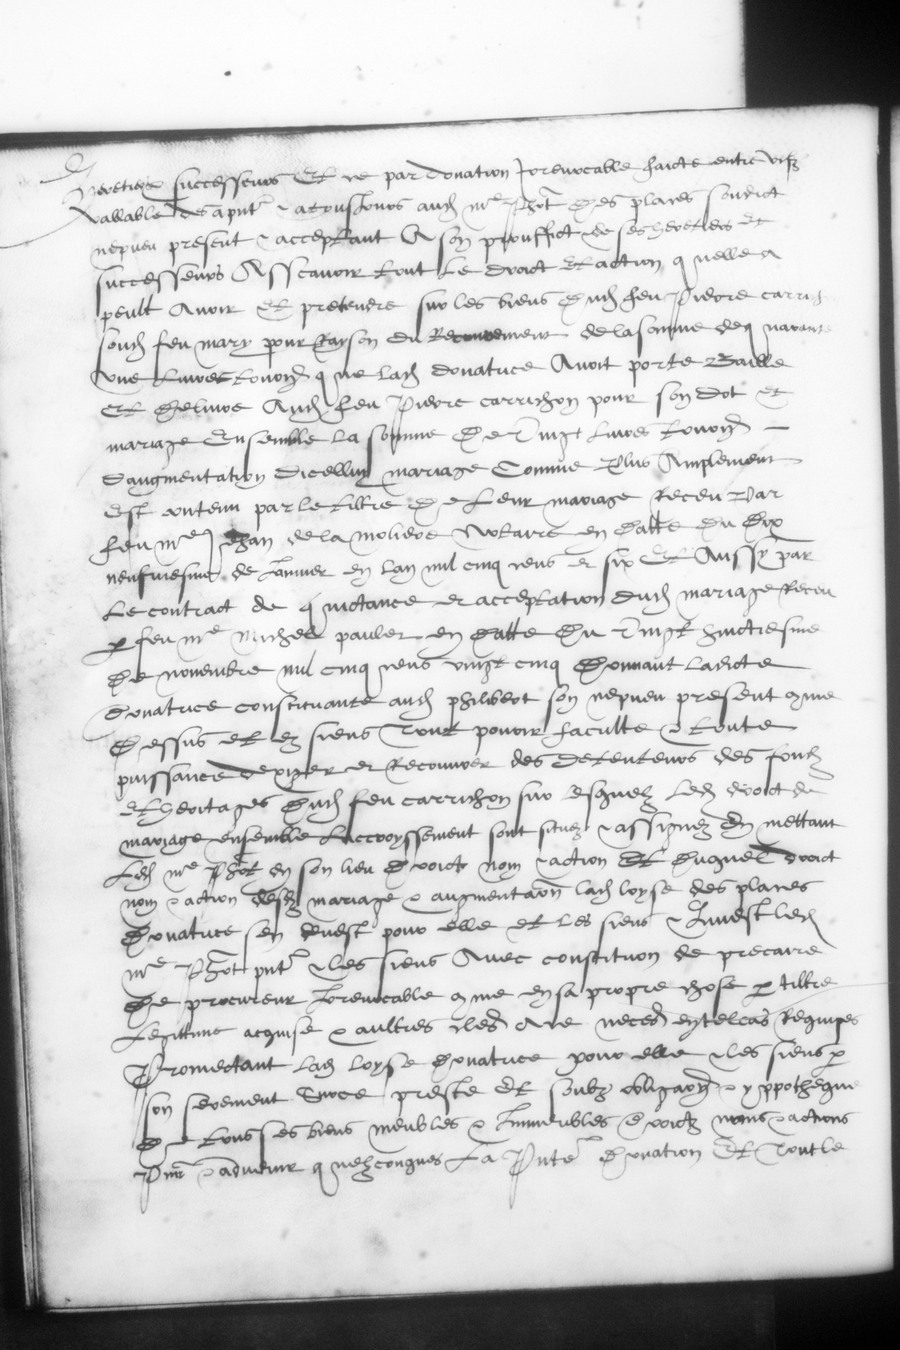 heretiers successeurs Et ce par donation Irrevocable faicte entre vifz
vallable des a pnt & a tousiours aud mre Phot des places soudict
nepveu present & acceptant A son prouffict de ses heretiers et
successeurs Asscavoir tout le droict Et action quelle a
peult Avoir Et pretendre sur les biens dud feu Pierre carri
soud feu mary pour Rayson du de la somme de quarante
une livres tournoys que lad donatrice Avoit porte Baille
Et delivre Aud feu Pierre carrichon pour son dot Et
mariage Ensemble la somme de Vingt livres tournoys
daugmentation dicelluy mariage Comme Plus Amplement
Est contenu par le tiltre de leur mariage Receu Par
feu mre Jehan de la moliere Notaire en datte du dix
neufviesme de Janvier en lan mil cinq cens et six Et Aussy par
Le contract de quictance et acceptation dud mariage Receu
p feu mre Michel paulet en datte du Vingt huictiesme
De novembre mil cinq cens vingt cinq Donnant ladicte
donatrice constituante aud philibert son nepveu present comme
Dessus et es siens Tout pouvoir faculte & toute
puissance dexiger et recouvrer des detenteurs des fondz
et heritages dud feu carrichon sur esquelz led droict de
mariage ensemble laccroyssement sont situez & assignez En mettant
Led mre Phot en son lieu droict nom & action Et duquel droict
nom & action desd mariage & augmentaon lad loyse des places
donatrice sen devest pour elle et les siens & Invest led
mre Phot pnt & les siens Avec constituon de precaire
De procureur Irrevocable comme en sa propre chose p tiltre
Legitime acquise & aultres cles Ace neces en tel cas Requises
Promectant lad loyse donatrice pour elle & les siens p
son serement Sur ce preste Et soubz obligaon & yppotheque
De tous ses biens meubles & Immeubles droictz noms & actions
Pns & advenir quelzconques La Pnte donation Et Tout le